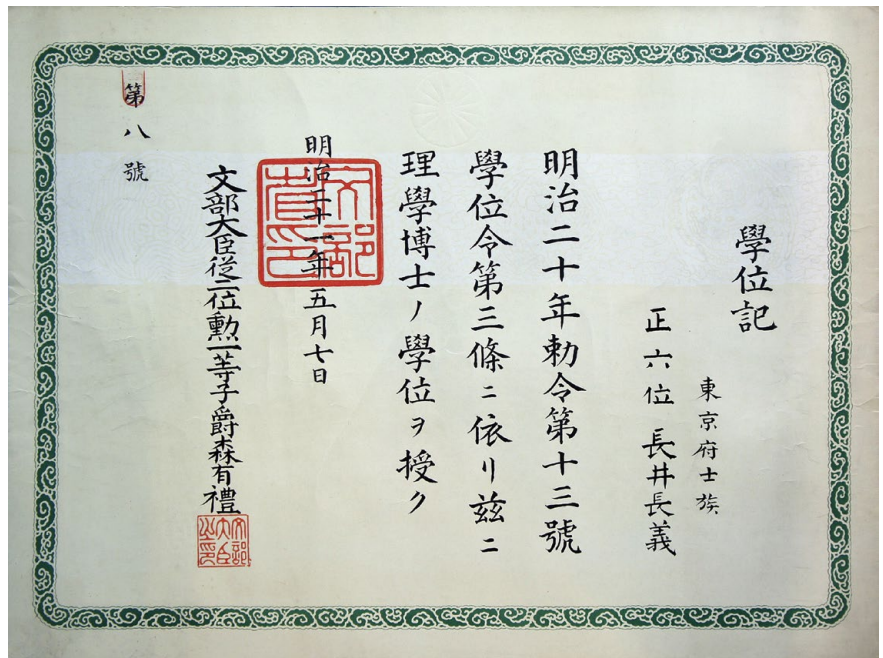 學位記
東京府士族
正六位 長井長義
明治二十年勅令第十三號
學位令第三條ニ依リ茲ニ
理學博士ノ學位ヲ授ク
明治二十一年五月七日
文部省印
文部大臣従二位勲一等子爵森有禮
文部大臣之印
第八號